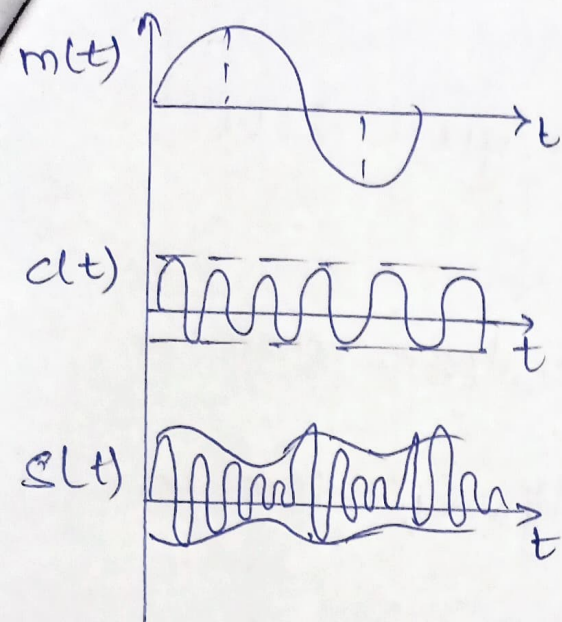 m(t)
t
c(t)
t
s(t)
t